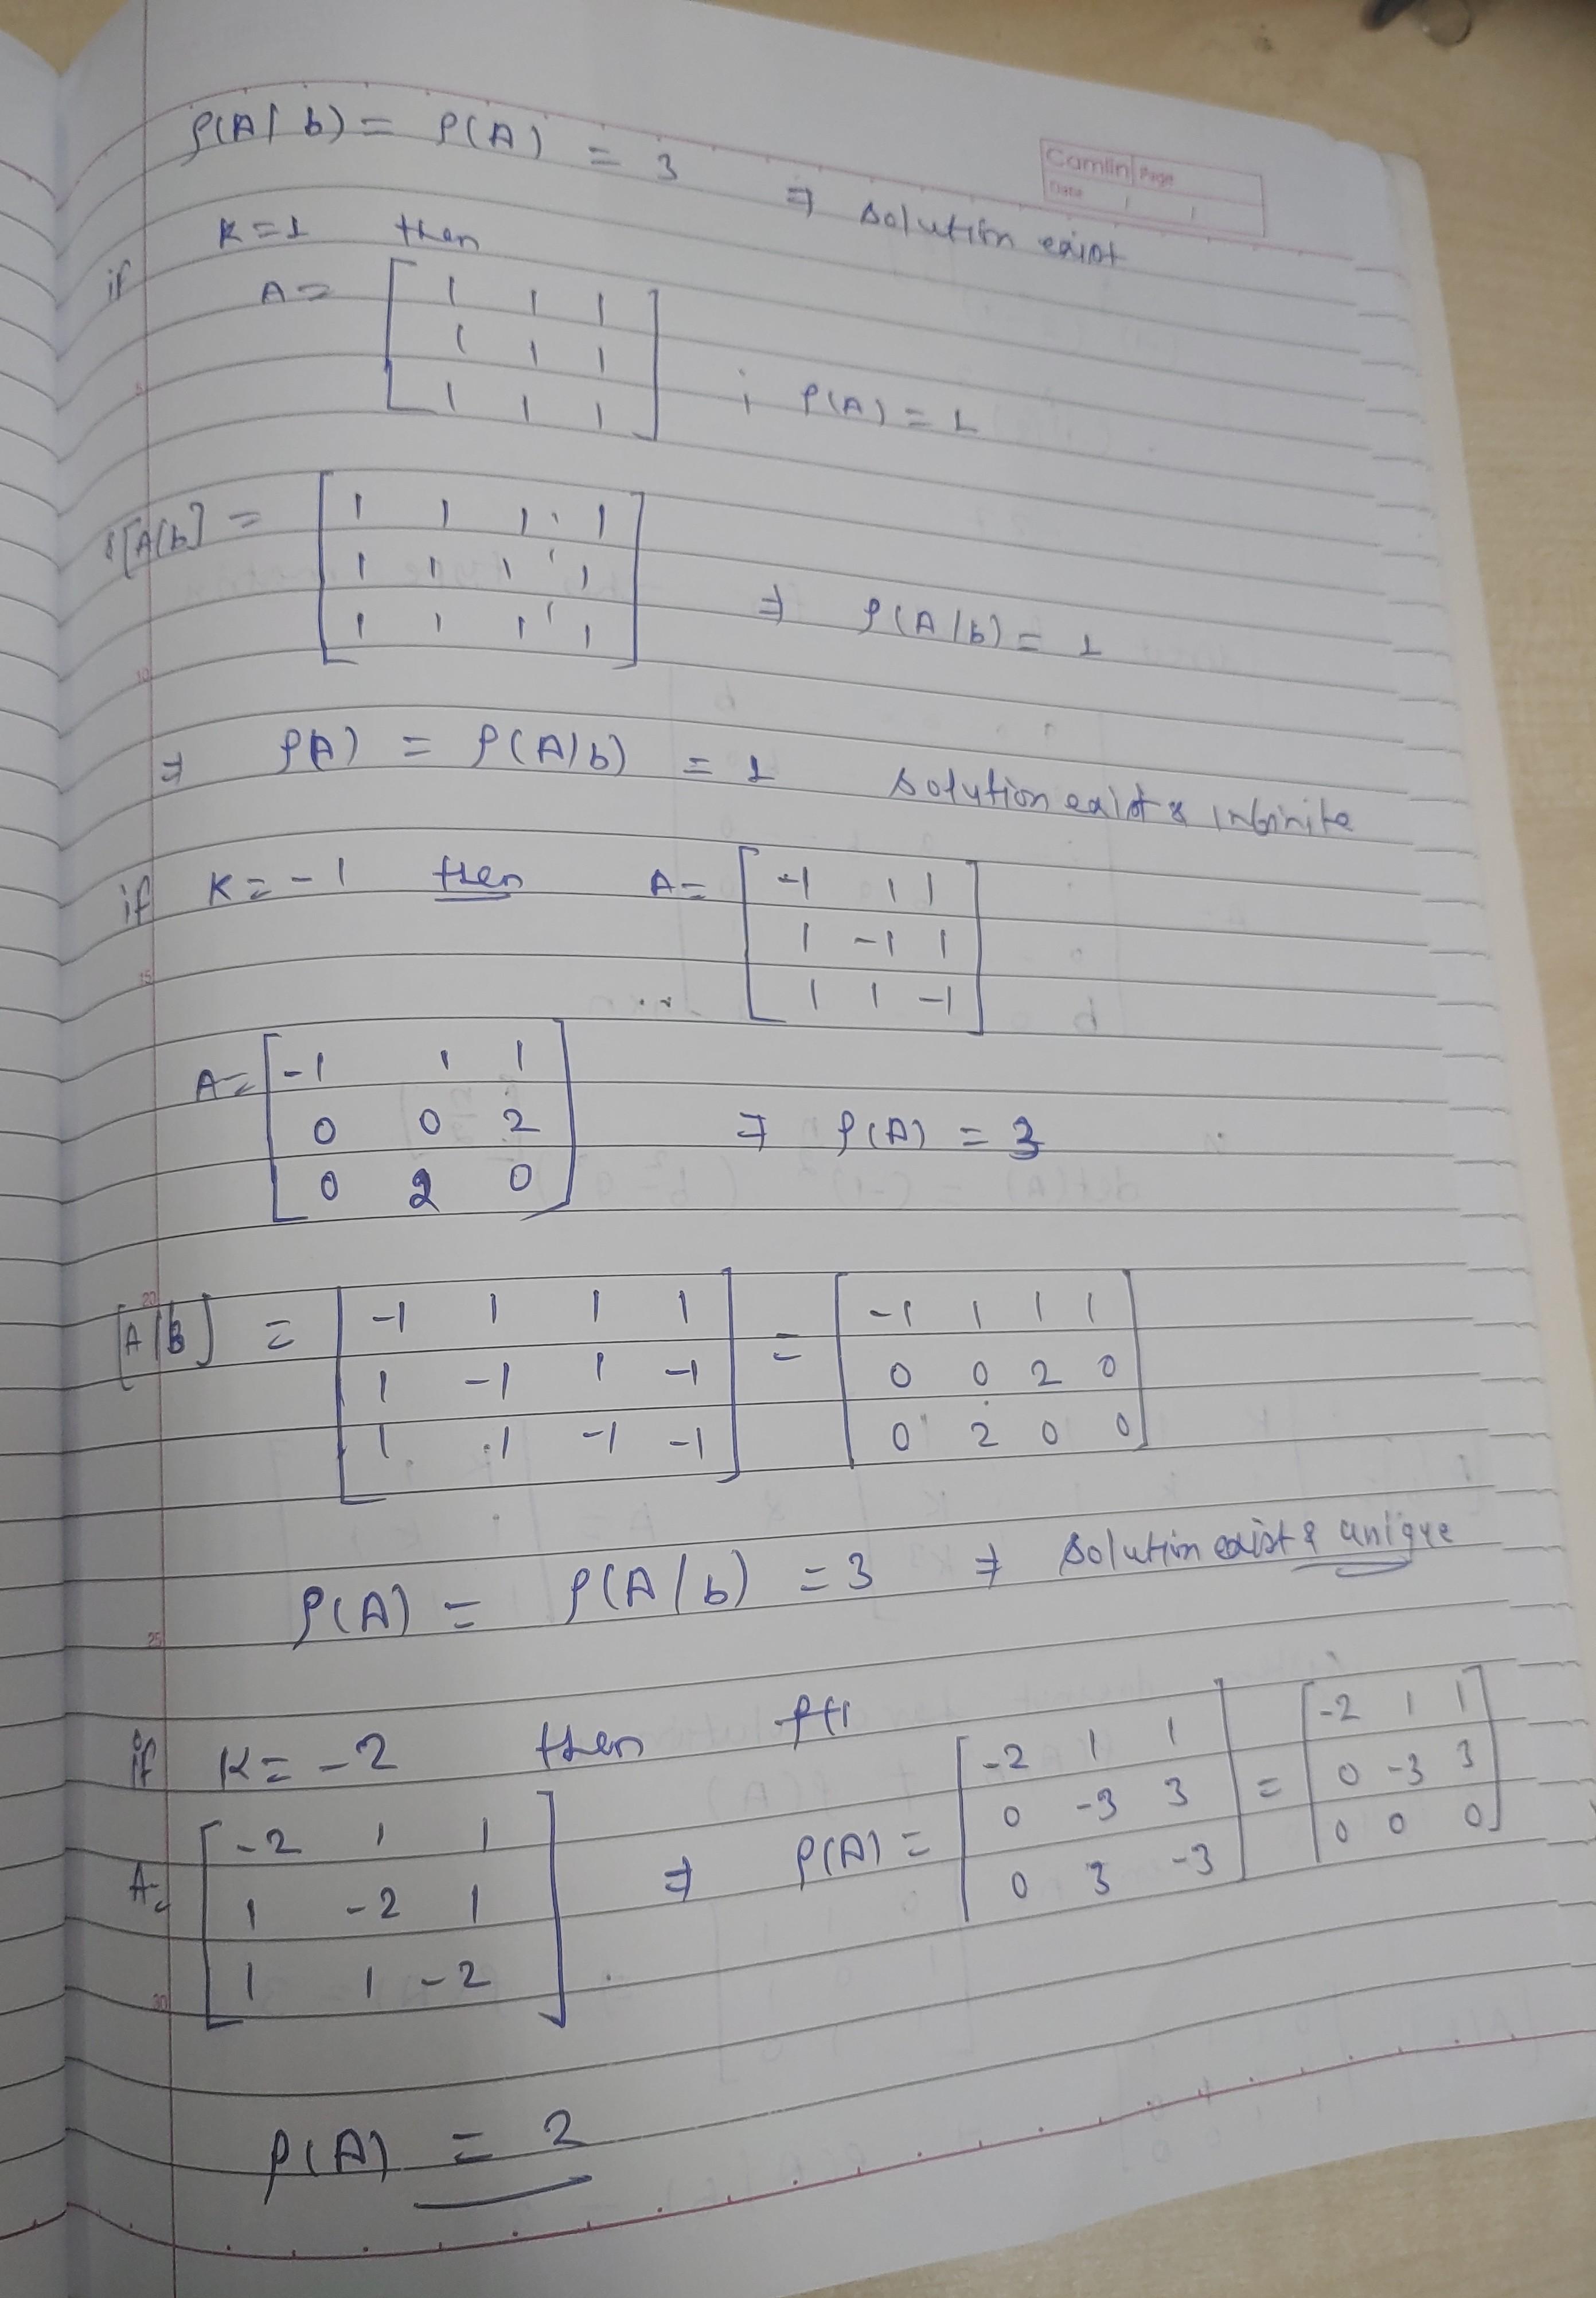 ρ(A/b) = ρ(A) = 3 ⇒ solution exist
Camlin Page
Date / /
if K=1 then
A = [ 1 1 1
1 1 1
1 1 1 ] ; ρ(A) = 1
[A/b] = [ 1 1 1 1
1 1 1 1
1 1 1 1 ] ⇒ ρ(A/b) = 1
⇒ ρ(A) = ρ(A/b) = 1 solution exist & infinite
if K = -1 then A = [ -1 1 1
1 -1 1
1 1 -1 ]
A = [ -1 1 1
0 0 2
0 2 0 ] ⇒ ρ(A) = 3
[A/B] = [ -1 1 1 1
1 -1 1 -1
1 1 -1 -1 ] = [ -1 1 1 1
0 0 2 0
0 2 0 0 ]
ρ(A) = ρ(A/b) = 3 ⇒ solution exist & unique
if K = -2 then
A = [ -2 1 1
1 -2 1
1 1 -2 ] ⇒ ρ(A) = [ -2 1 1
0 -3 3
0 3 -3 ] = [ -2 1 1
0 -3 3
0 0 0 ]
ρ(A) = 2
5
10
15
20
25
30